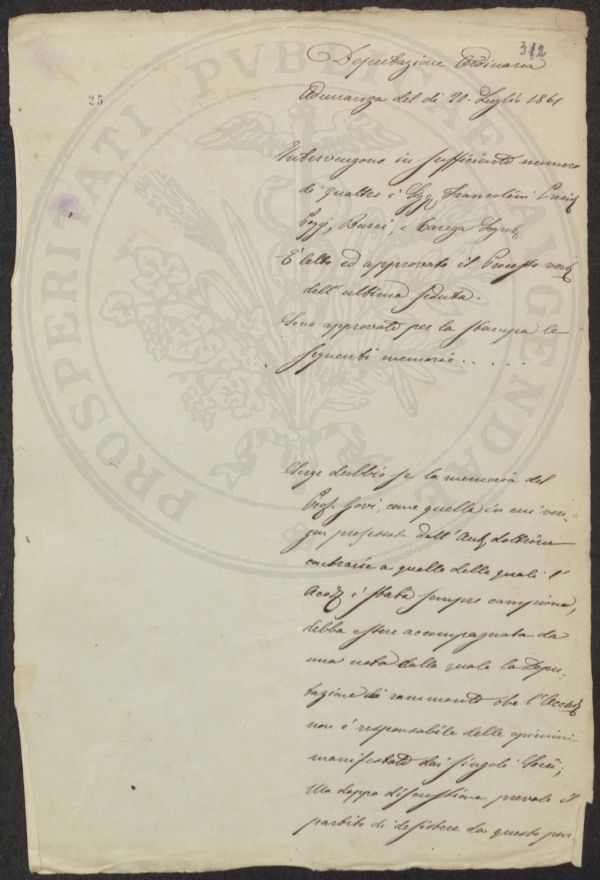 312
Deputazione Ordinaria
25
Adunanza del dì 20 Luglio 1861
Intervengono in sufficiente numero
di quattro i Sigg. Francolini
Poggi, Bucci, e Carega Segret.
È letto ed approvato il Processo verb.
dell'ultima seduta.
Sono approvate per la stampa le
seguenti memorie . . . . .
Sorge dubbio se la memoria del
Prof. Govi, come quella in cui ven-
gon professate dall'Aut. dottrine
contrarie a quelle delle quali l'
Accad. è stata sempre campione,
debba essere accompagnata da
una nota dalla quale la Depu-
tazione si rammenti che l'Accad.
non è responsabile delle opinioni
manifestate dai singoli Socii;
Ma doppo discussione prevale il
partito di desistere da questo pen
PROSPERITATI PVBLICAE AVGENDAE